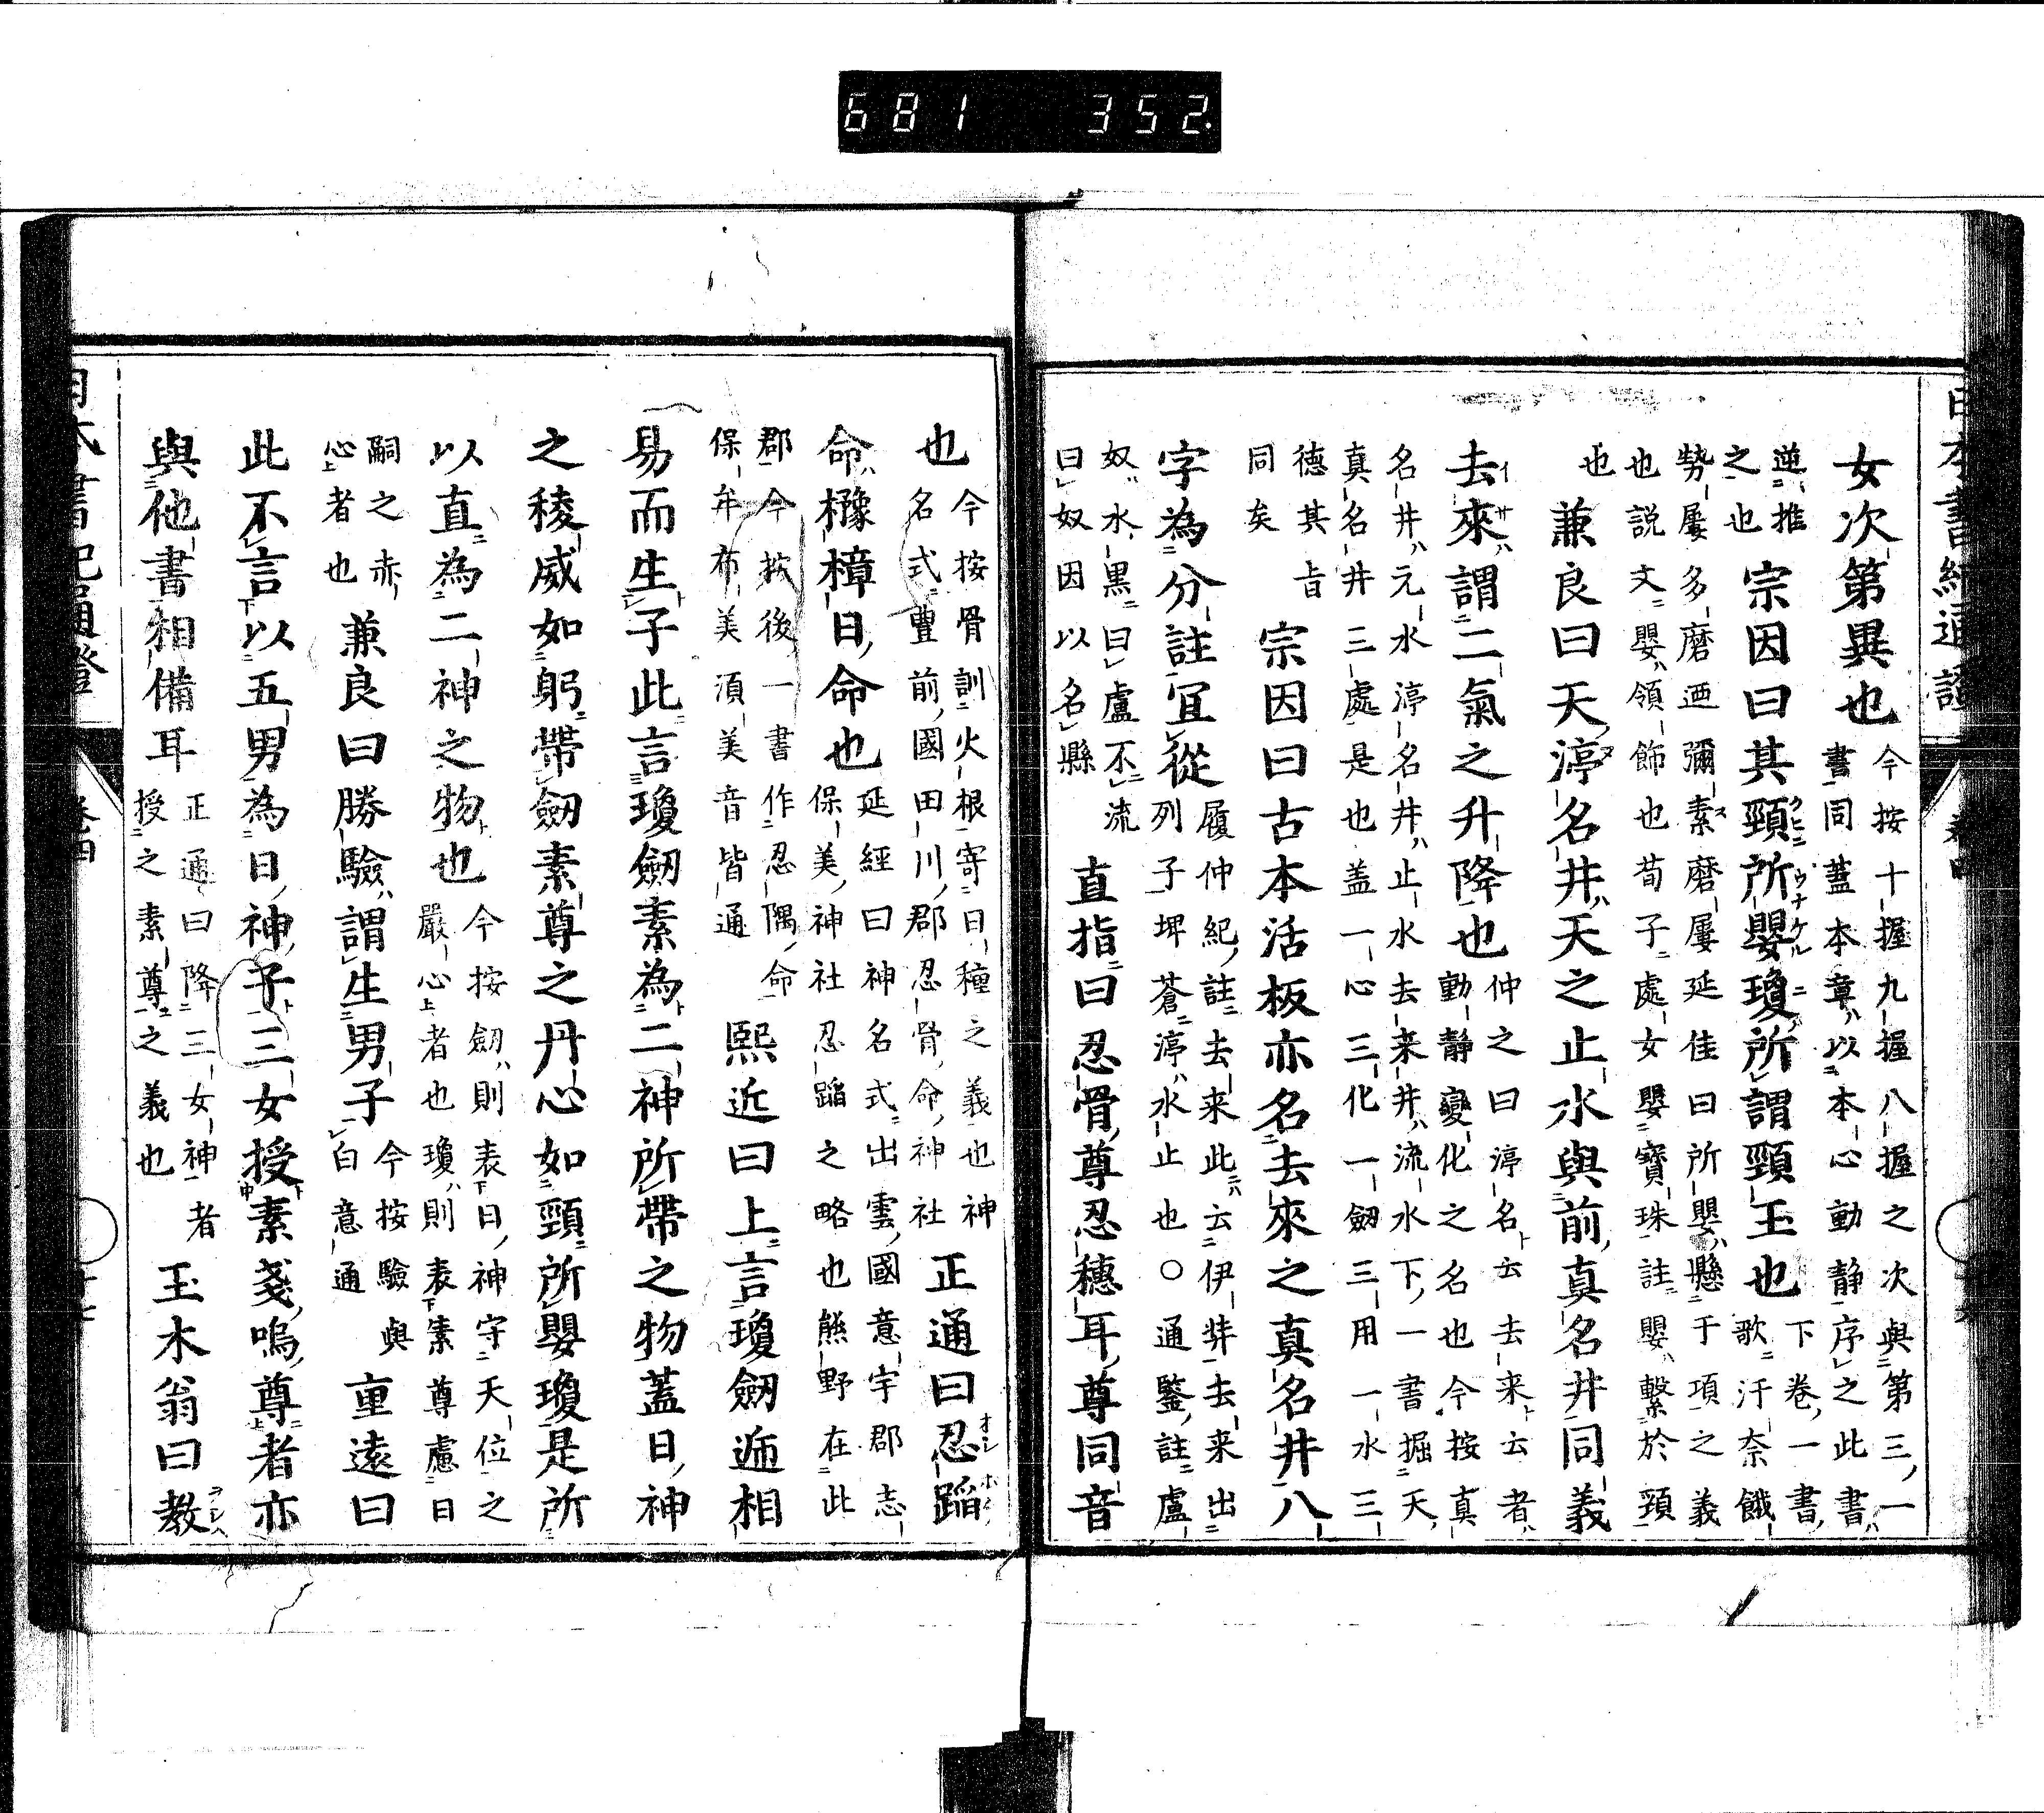 日本書紀通證
卷四
女次第異也今按十握九握八握之次與第三一書同蓋本章以本心動静序之此書
逆推之也宗因曰其頸所嬰瓊所謂頸玉也下卷一書歌汗奈餓
勢屢多磨迺彌素磨屢延佳曰所嬰懸于項之義也説文嬰領飾也荀子處女嬰寶珠註嬰繫於頸
也兼良曰天渟名井天之止水與前真名井同義
去來謂二氣之升降也仲之曰渟名云去来云者動静變化之名也今按真
名井元水渟名井止水去来井流水下一書掘天真名井三處是也盖一心三化一劔三用一水三
德其旨同矣宗因曰古本活板亦名去來之真名井八
字為分註宜從履仲紀註去来此云伊弉去来出列子埤蒼渟水止也○通鑒註盧
奴水黒曰盧不流曰奴因以名縣直指曰忍骨尊忍穗耳尊同音
也今按骨訓火根寄日種之義也神名式豐前國田川郡忍骨命神社正通曰忍蹈
命櫲樟日命也延經曰神名式出雲國意宇郡志保美神社忍蹈之略也熊野在此
郡今按後一書作忍隅命保牟布美須美音皆通熙近曰上言瓊劔逓相
易而生子此言瓊劔素為二神所帶之物蓋日神
之稜威如躬帶劔素尊之丹心如頸所嬰瓊是所
以直為二神之物也今按劔則表日神守天位之嚴心者也瓊則表素尊慮日
嗣之赤心者也兼良曰勝驗謂生男子今按驗與白意通重遠曰
此不言以五男為日神子三女授素戔嗚尊者亦
與他書相備耳正通曰降三女神者授之素尊之義也玉木翁曰教
日本書紀通證
卷四